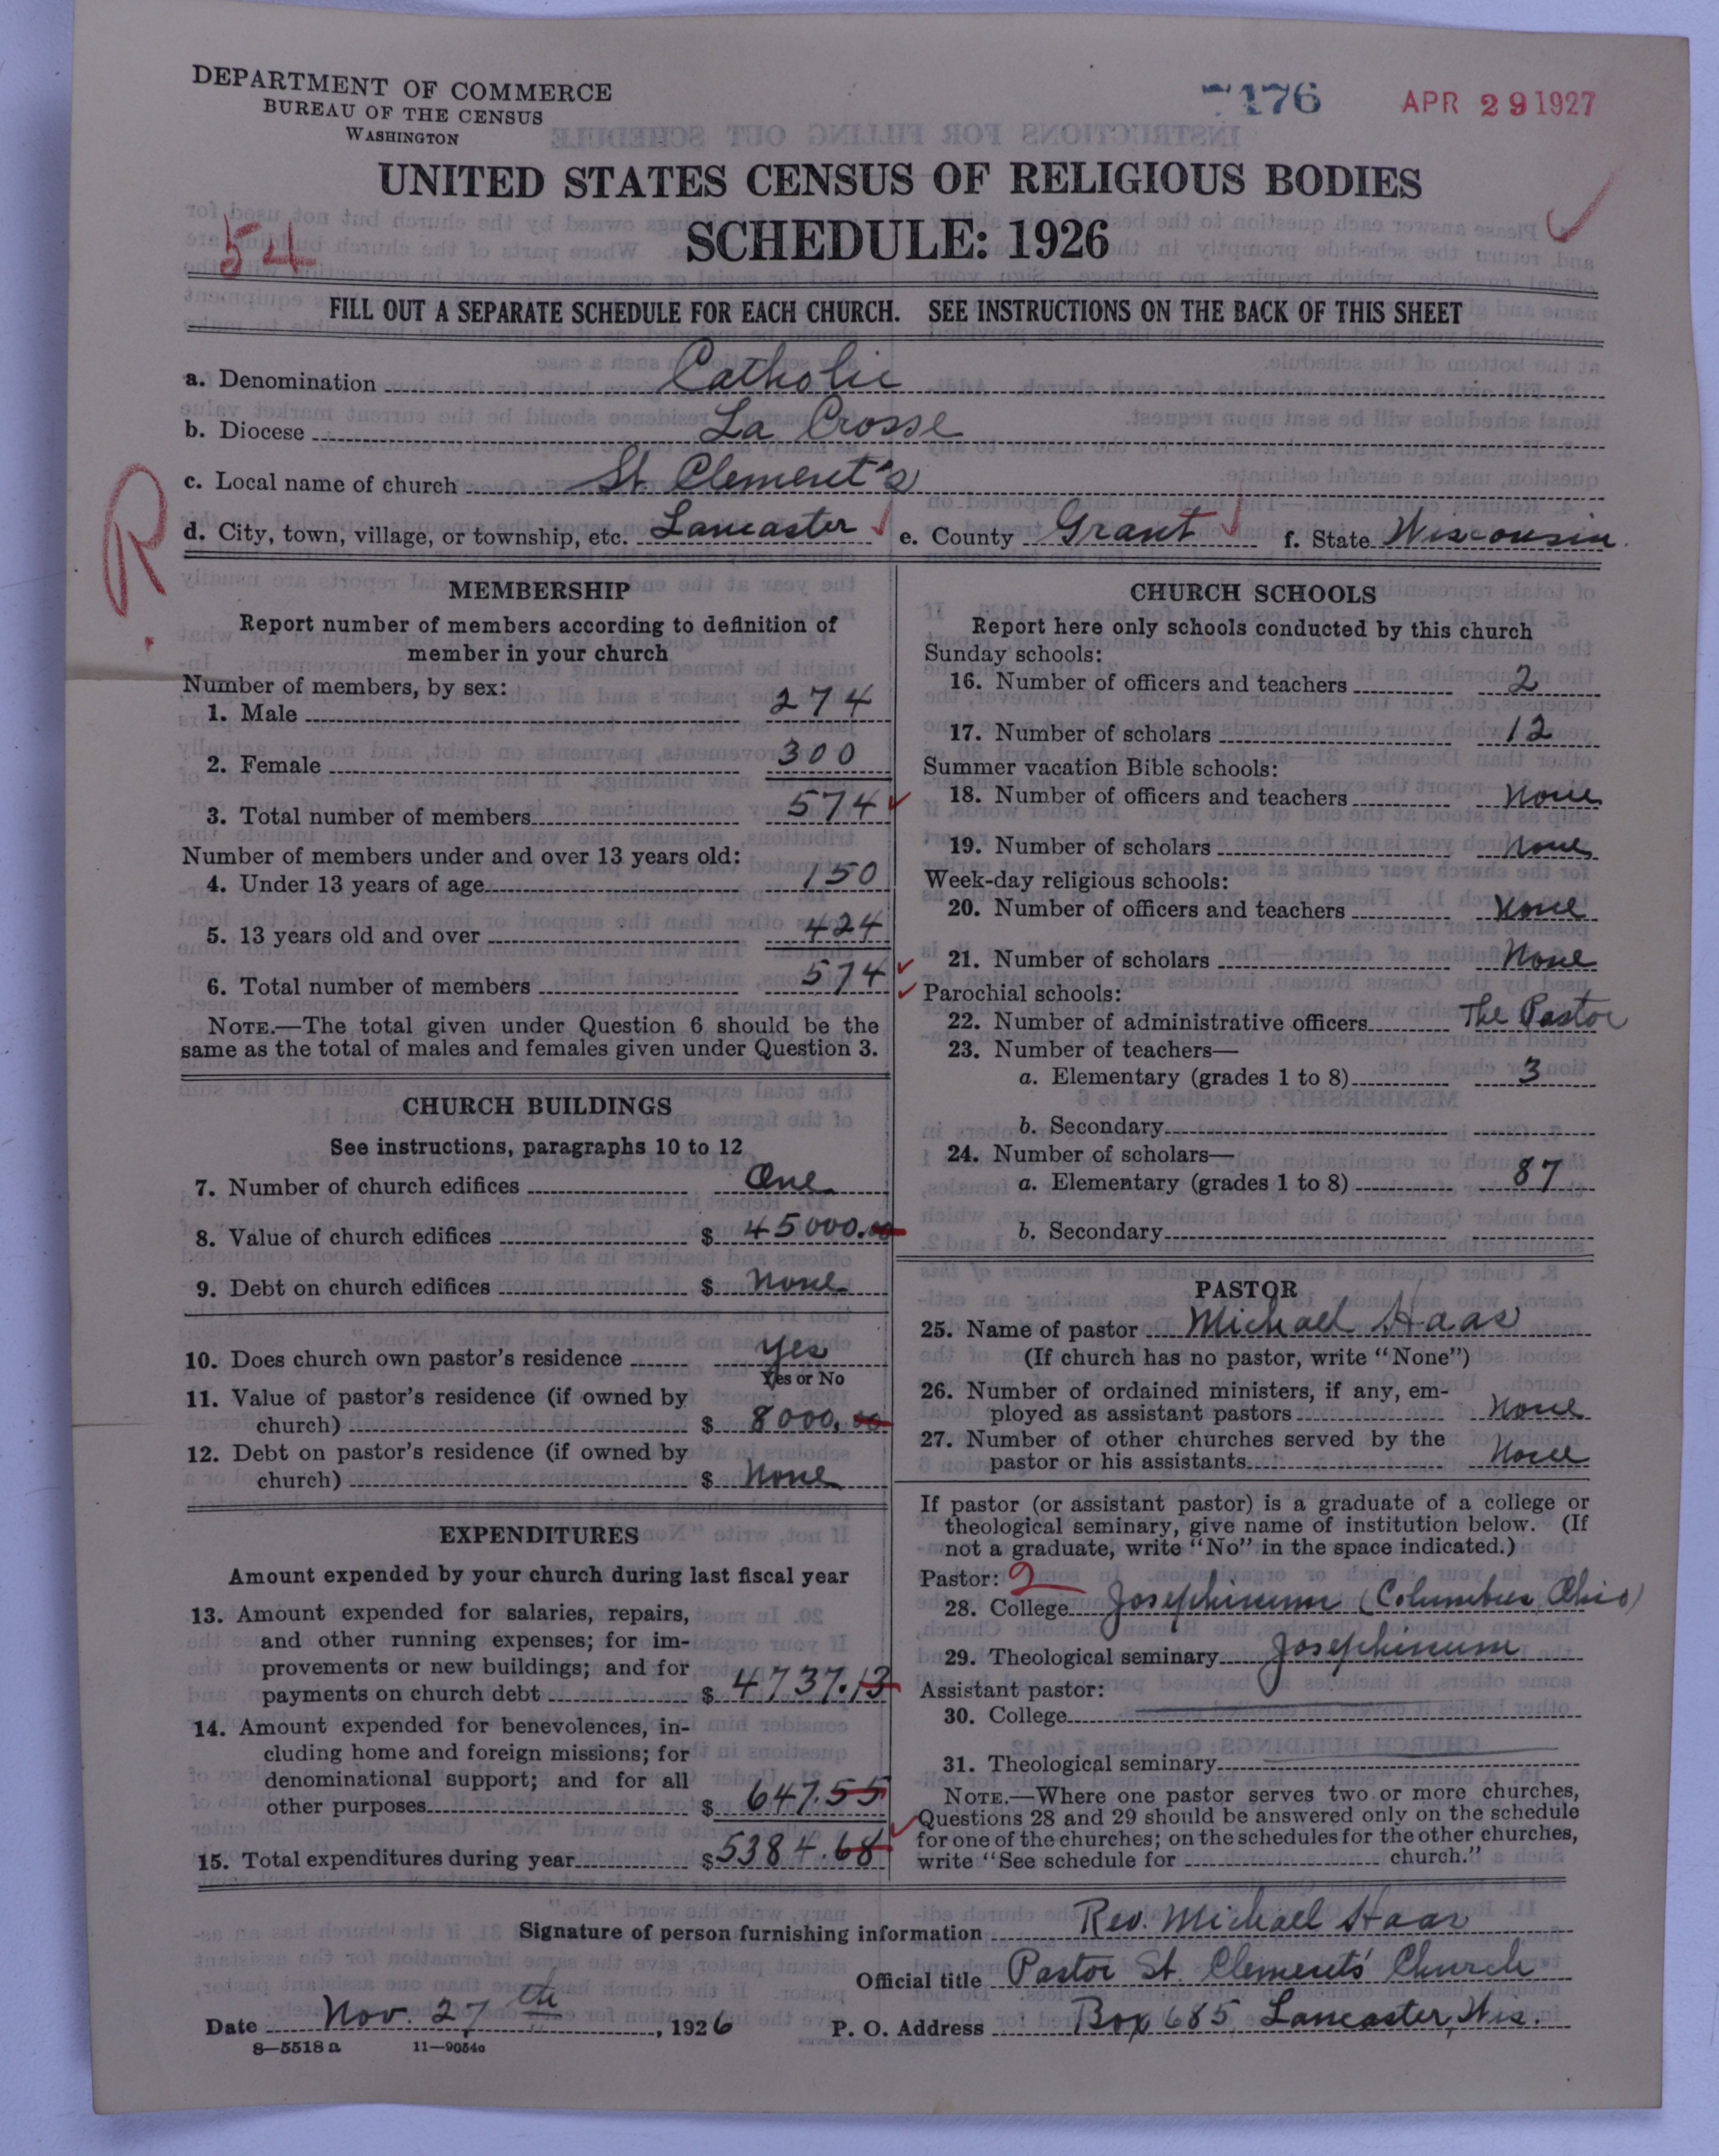 DEPARTMENT OF COMMERCE
BUREAU OF THE CENSUS
WASHINGTON
7176
APR 29 1927
UNITED STATES CENSUS OF RELIGIOUS BODIES
SCHEDULE: 1926
54
FILL OUT A SEPARATE SCHEDULE FOR EACH CHURCH. SEE INSTRUCTIONS ON THE BACK OF THIS SHEET
a. Denomination Catholic
b. Diocese La Crosse
c. Local name of church St. Clement's
R.
d. City, town, village, or township, etc. Lancaster e. County Grant f. State Wisconsin.
MEMBERSHIP
Report number of members according to definition of
member in your church
Number of members, by sex:
1. Male 274
2. Female 300
3. Total number of members 574
Number of members under and over 13 years old:
4. Under 13 years of age 150
5. 13 years old and over 424
6. Total number of members 574
NOTE.—The total given under Question 6 should be the
same as the total of males and females given under Question 3.
CHURCH BUILDINGS
See instructions, paragraphs 10 to 12
7. Number of church edifices One
8. Value of church edifices $ 45000.00
9. Debt on church edifices $ None
10. Does church own pastor's residence Yes
Yes or No
11. Value of pastor's residence (if owned by
church) $ 8000.00
12. Debt on pastor's residence (if owned by
church) $ None
EXPENDITURES
Amount expended by your church during last fiscal year
13. Amount expended for salaries, repairs,
and other running expenses; for im-
provements or new buildings; and for
payments on church debt $ 4737.13
14. Amount expended for benevolences, in-
cluding home and foreign missions; for
denominational support; and for all
other purposes $ 647.55
15. Total expenditures during year $ 5384.68
CHURCH SCHOOLS
Report here only schools conducted by this church
Sunday schools:
16. Number of officers and teachers 2
17. Number of scholars 12
Summer vacation Bible schools:
18. Number of officers and teachers None
19. Number of scholars None
Week-day religious schools:
20. Number of officers and teachers None
21. Number of scholars None
Parochial schools:
22. Number of administrative officers The Pastor
23. Number of teachers—
a. Elementary (grades 1 to 8) 3
b. Secondary
24. Number of scholars—
a. Elementary (grades 1 to 8) 87
b. Secondary
PASTOR
25. Name of pastor Michael Haas
(If church has no pastor, write "None")
26. Number of ordained ministers, if any, em-
ployed as assistant pastors None
27. Number of other churches served by the
pastor or his assistants None
If pastor (or assistant pastor) is a graduate of a college or
theological seminary, give name of institution below. (If
not a graduate, write "No" in the space indicated.)
Pastor: 2
28. College Josephinum (Columbus, Ohio)
29. Theological seminary Josephinum
Assistant pastor:
30. College
31. Theological seminary
NOTE.—Where one pastor serves two or more churches,
Questions 28 and 29 should be answered only on the schedule
for one of the churches; on the schedules for the other churches,
write "See schedule for church."
Signature of person furnishing information Rev. Michael Haas
Official title Pastor St. Clements' Church
Date Nov. 27th, 1926 P. O. Address Box 685, Lancaster, Wis.
8—5518a 11—9054a